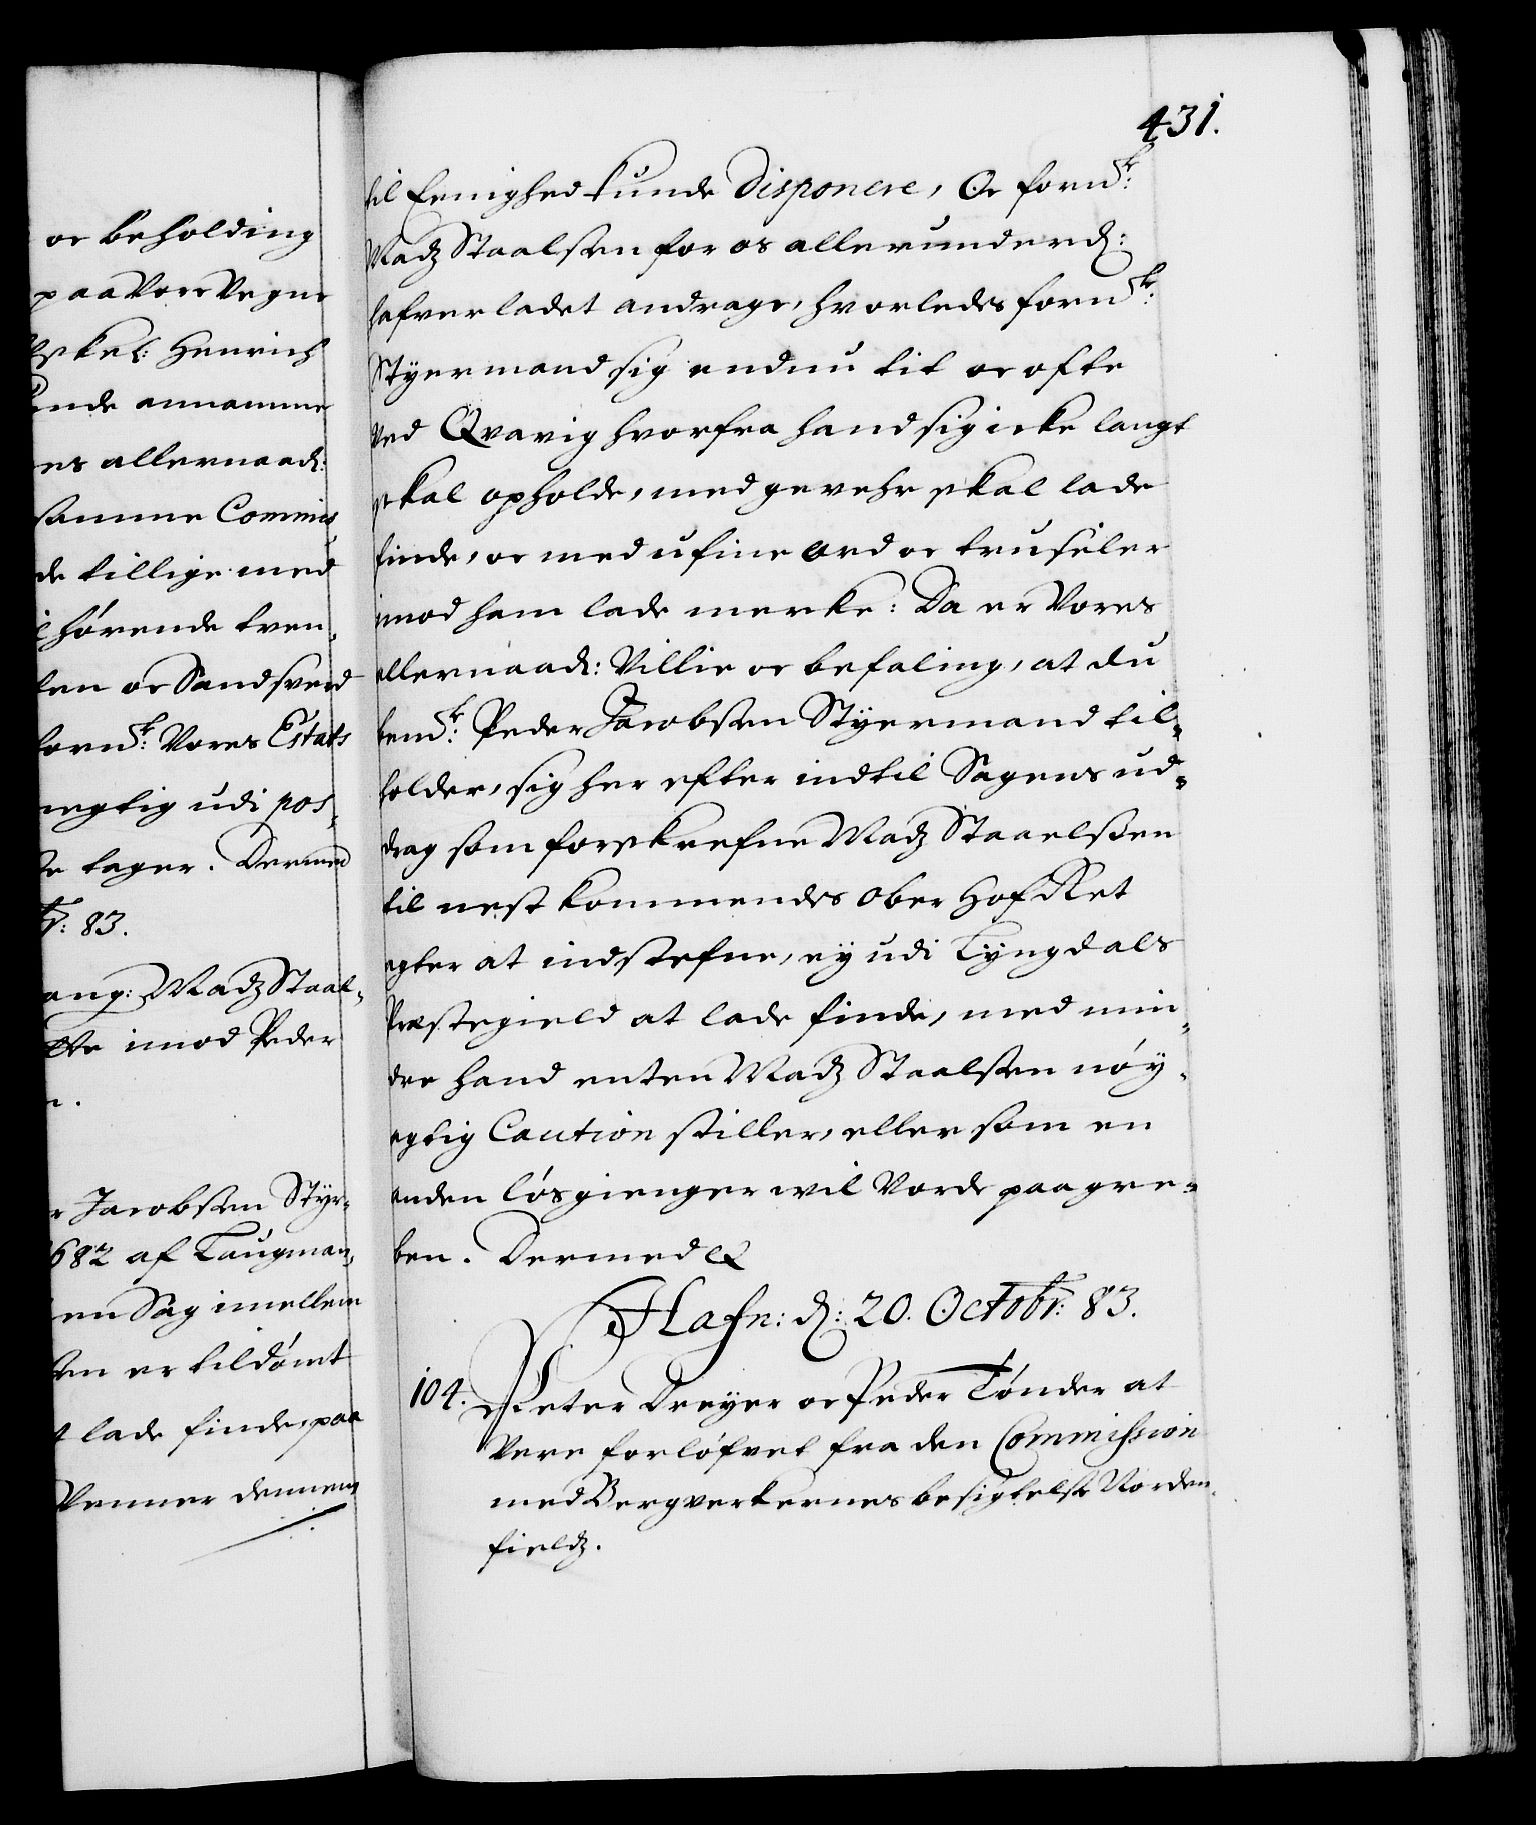 or beholding
paa Vore Vegne
skel: Henrich
ende annamme
es allernaad:
samme Commis
de tillige med
hörende tven¬
len oc Sandsverd
forn: Vores Estats
megtig udi pos¬
te tager. Dermed
83.
ang: Madz Staal¬
imod Peder
Jacobsen Styr¬
682 af Laugman¬
en Sag imellem
en er tildömt
lade finde, paa
Venner dennem
431.
til Eenighed kunde disponere, Oc fornskr:
Madz Staalsen for os allerunderd:
hafver ladet andrage, hvorledes fornskr:
Styermand sig endnu tit oc ofte
ved Qvavig hvorfra hand sig icke langt
skal opholde, med gevehr skal lade
finde, oc med ufine ord oc truseler
imod ham lade mercke: Da er Vores
allernaad: Villie oc befaling, at du
bemskr: Peder Jacobsen Styermand til¬
holder, sig her efter indtil Sagens ud¬
drag som forskrefne Madz Staaelsen
til nest kommendes Ober Hof Ret
agter at indstefne, ey udi Lyngdals
Præstegield at lade finde, med min¬
dre hand enten Madz Staalsen nöy¬
agtig Caution stiller, eller som en
anden lösgienger wil vorde paagre¬
ben. Dermed &
Hafn: d: 20. Octobr: 83.
104. Peter Dreyer oc Peder Tönder at
Vere forlöfvet fra den Commission
med Bergverkernes besigtelse Norden¬
fieldz.